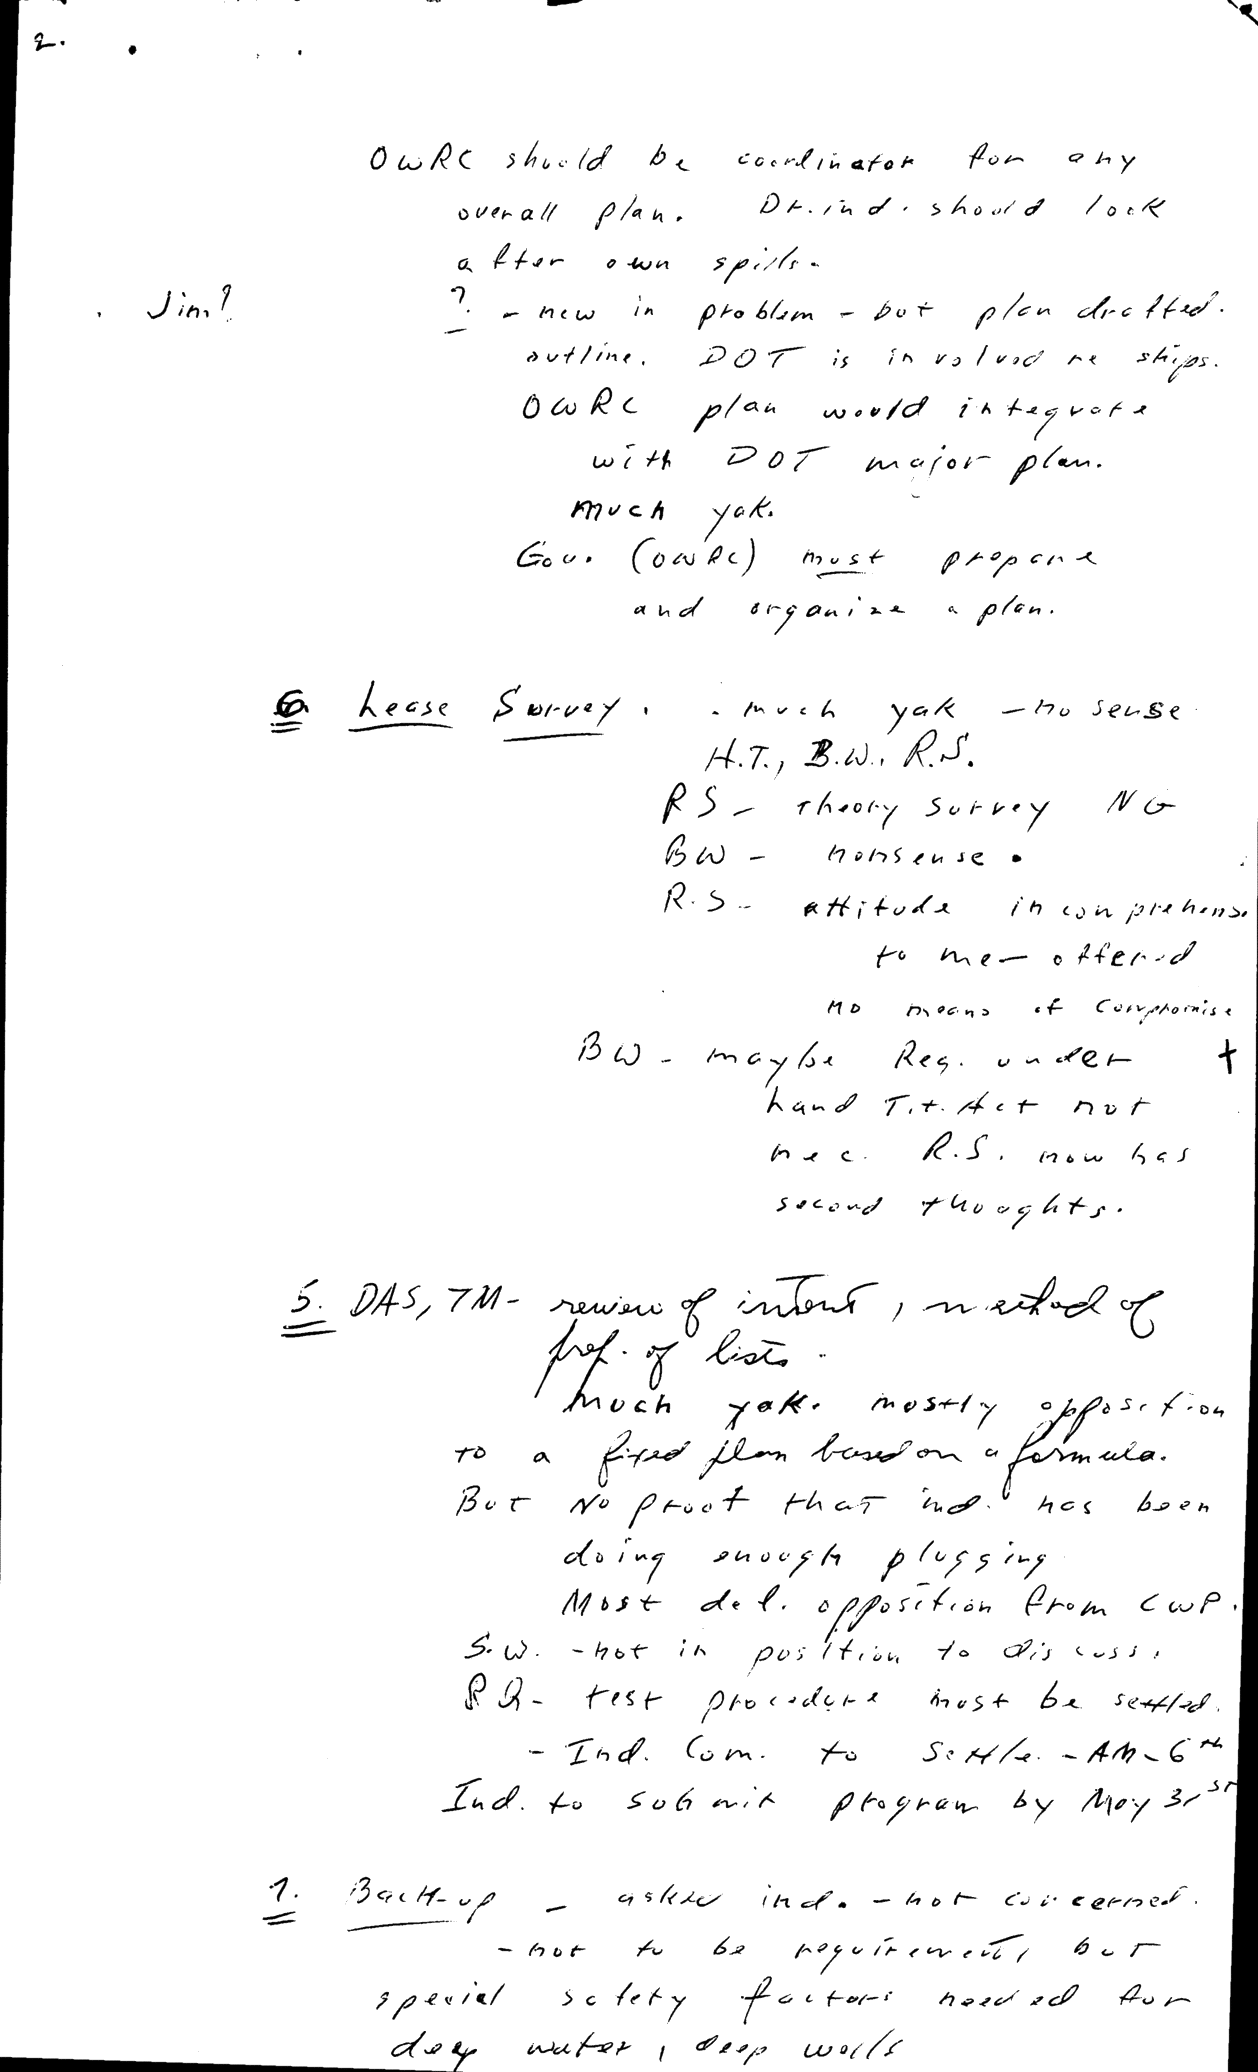 2.
OWRC should be coordinator for any
overall plan. Dr. ind. should look
after own spills.
Jim? ? - new in problem - but plan drafted.
outline. DOT is involved re ships.
OWRC plan would integrate
with DOT major plan.
much yak.
Gov. (OWRC) must prepare
and organize a plan.
6 Lease Survey. - much yak - no sense
H.T., B.W., R.S.
RS - theory survey NG
BW - nonsense.
R.S. - attitude incomprehens.
to me - offered
no means of compromise
BW - maybe Reg. under
Land Tit. Act not
nec. R.S. now has
second thoughts.
5. DAS, TM - review of intent, method of
prep. of lists.
much yak. mostly opposition
to a fixed plan based on a formula.
But no proof that ind. has been
doing enough plugging
Most def. opposition from CWP.
S.W. - not in position to discuss.
test procedure must be settled.
- Ind. Com. to settle. - AM - 6th
Ind. to submit program by May 31st
7. Back-up - asked ind. - not concerned.
- not to be requirement, but
special safety factors needed for
deep water, deep wells